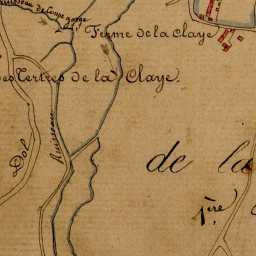 Ruisseau de Coupe gorge
Ferme de la Claye
es Tertres de la Claye.
Ruisseau
Dol
de la
1ère